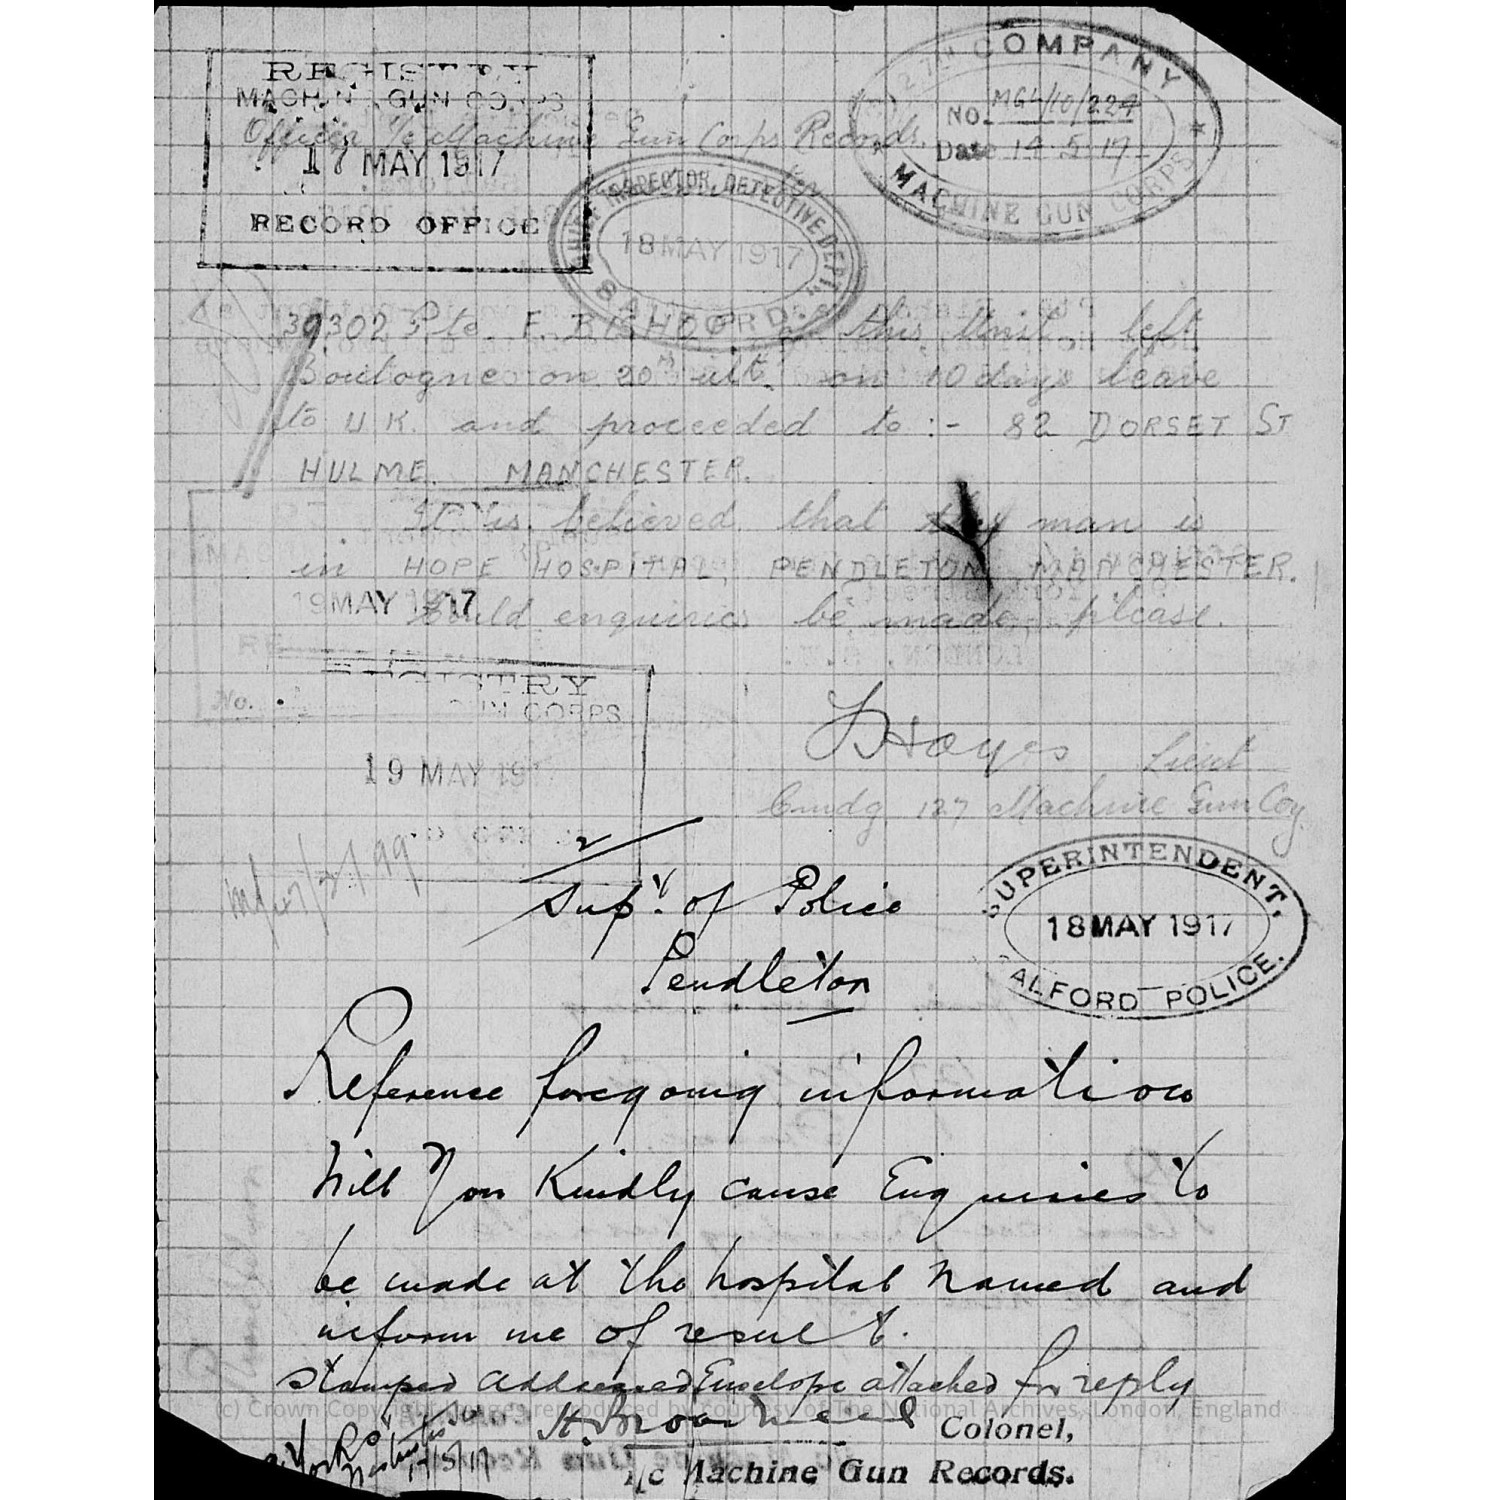 REGISTRY
MACHINE GUN CORPS
17 MAY 1917
RECORD OFFICE
127TH COMPANY
No. MG4/10/224
Date 14.5.17
MACHINE GUN CORPS
Officer i/c Machine Gun Corps Records.
CHIEF INSPECTOR, DETECTIVE DEPT.
18 MAY 1917
SALFORD.
39302 Pte. F. BISHOP of this Unit left
Boulogne on 20th ult. on 10 days leave
to U.K. and proceeded to :- 82 DORSET ST
HULME. MANCHESTER.
It is believed that this man is
in HOPE HOSPITAL, PENDLETON MANCHESTER.
19 MAY 1917
Could enquiries be made, please.
REGISTRY
GUN CORPS
No.
19 MAY 191
Hayes Lieut
Cmdg 127 Machine Gun Coy
2
Supt. of Police
Pendleton
SUPERINTENDENT,
18 MAY 1917
SALFORD POLICE.
Reference foregoing information
Will You Kindly cause Enquiries to
be made at the hospital named and
inform me of result.
Stamped Addressed Envelope attached for reply
(c) Crown Copyright Images reproduced by courtesy of The National Archives, London, England
Colonel,
i/c Machine Gun Records.